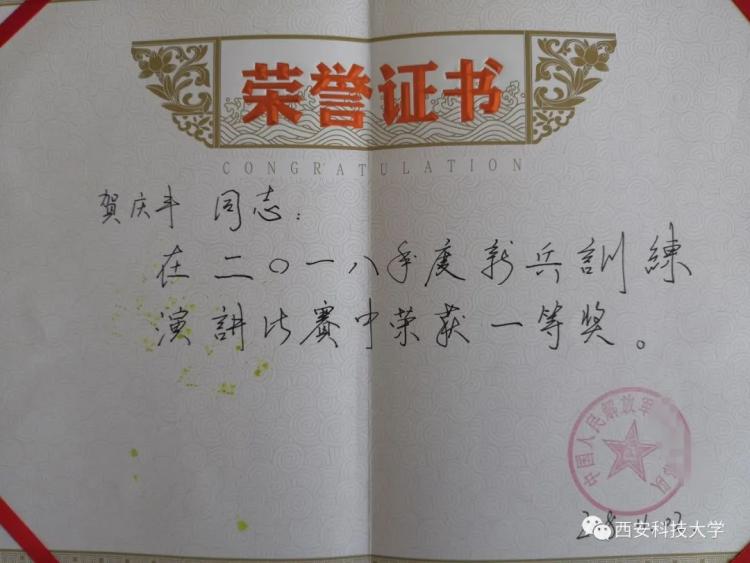 荣誉证书
CONGRATULATION
贺庆丰 同志：
在二〇一八年度新兵訓練
演讲比赛中荣获一等奖。
中国人民解放军
西安科技大学